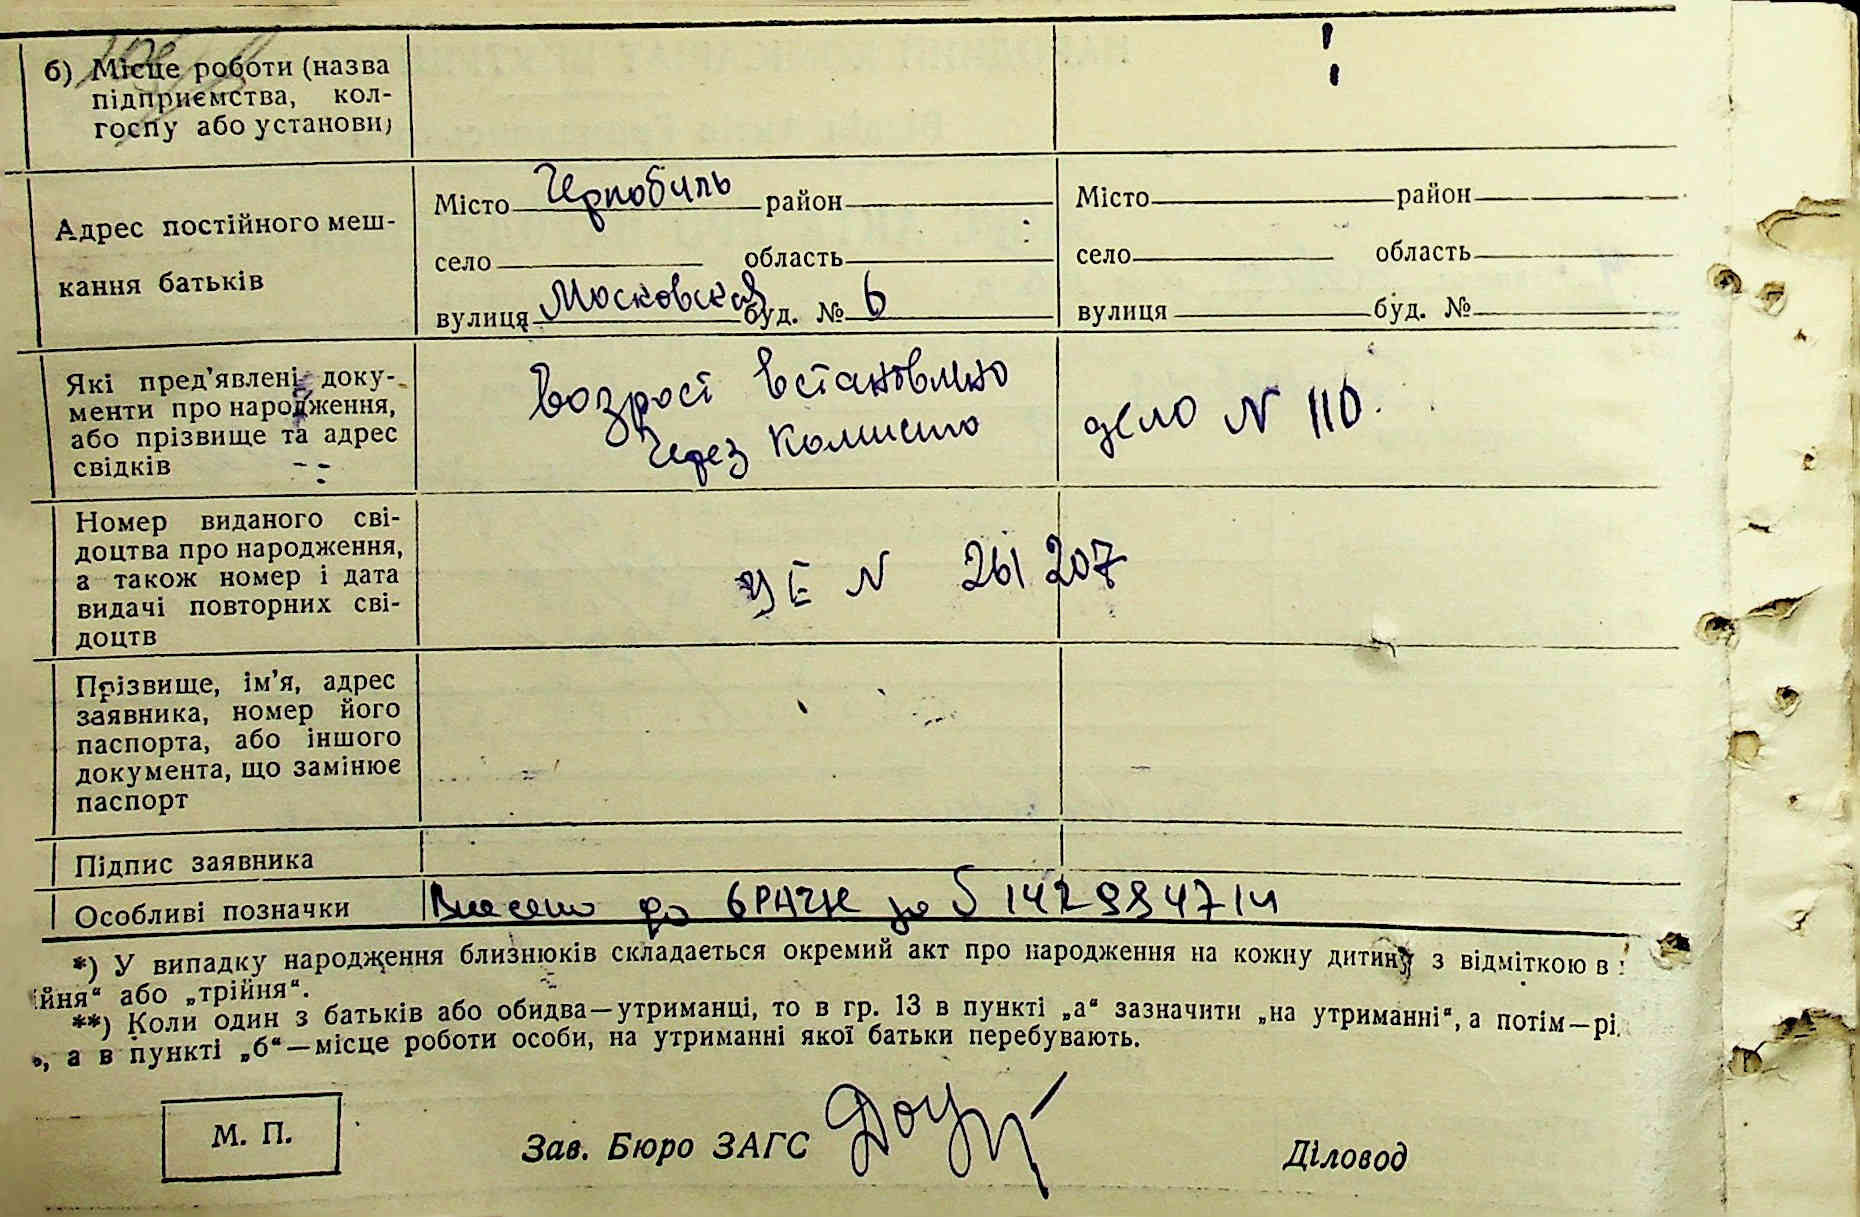 б) Місце роботи (назва
підприємства, кол-
госпу або установи)
Адрес постійного меш-
кання батьків
Місто Чернобиль район
село область
вулиця Московская буд. № 6
Місто район
село область
вулиця буд. №
Які пред'явлені доку-
менти про народження,
або прізвище та адрес
свідків
Возрост встановлено
через комисию
дело N 110.
Номер виданого сві-
доцтва про народження,
а також номер і дата
видачі повторних сві-
доцтв
УЕ N 261207
Прізвище, ім'я, адрес
заявника, номер його
паспорта, або іншого
документа, що замінює
паспорт
Підпис заявника
Особливі позначки
Внесено до за
*) У випадку народження близнюків складається окремий акт про народження на кожну дитину з відміткою в
ійня“ або „трійня“.
**) Коли один з батьків або обидва—утриманці, то в гр. 13 в пункті „а“ зазначити „на утриманні“, а потім—рі
“, а в пункті „б“—місце роботи особи, на утриманні якої батьки перебувають.
М. П.
Зав. Бюро ЗАГС
Діловод